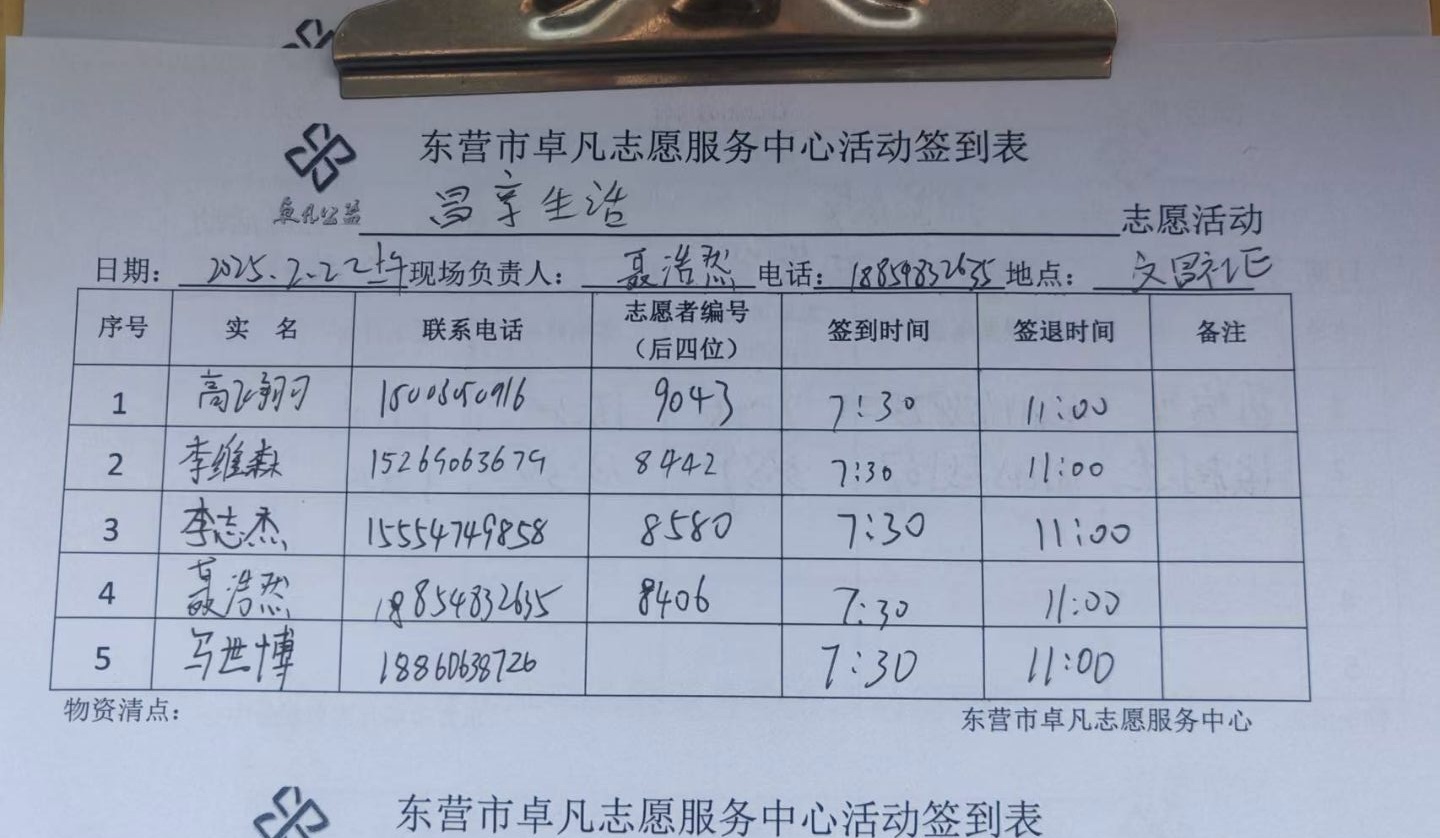 东营市卓凡志愿服务中心活动签到表
卓凡公益 昌享生活 志愿活动
日期: 2025.2.22上午 现场负责人: 聂浩然 电话: 18854832635 地点: 文昌社区
序号 实 名 联系电话 志愿者编号（后四位） 签到时间 签退时间 备注
1 高飞翔 9043 7:30 11:00
2 李维森 15269063679 8442 7:30 11:00
3 李志杰 15554749858 8580 7:30 11:00
4 聂浩然 18854832635 8406 7:30 11:00
5 马世博 18860638726 7:30 11:00
物资清点: 东营市卓凡志愿服务中心
东营市卓凡志愿服务中心活动签到表